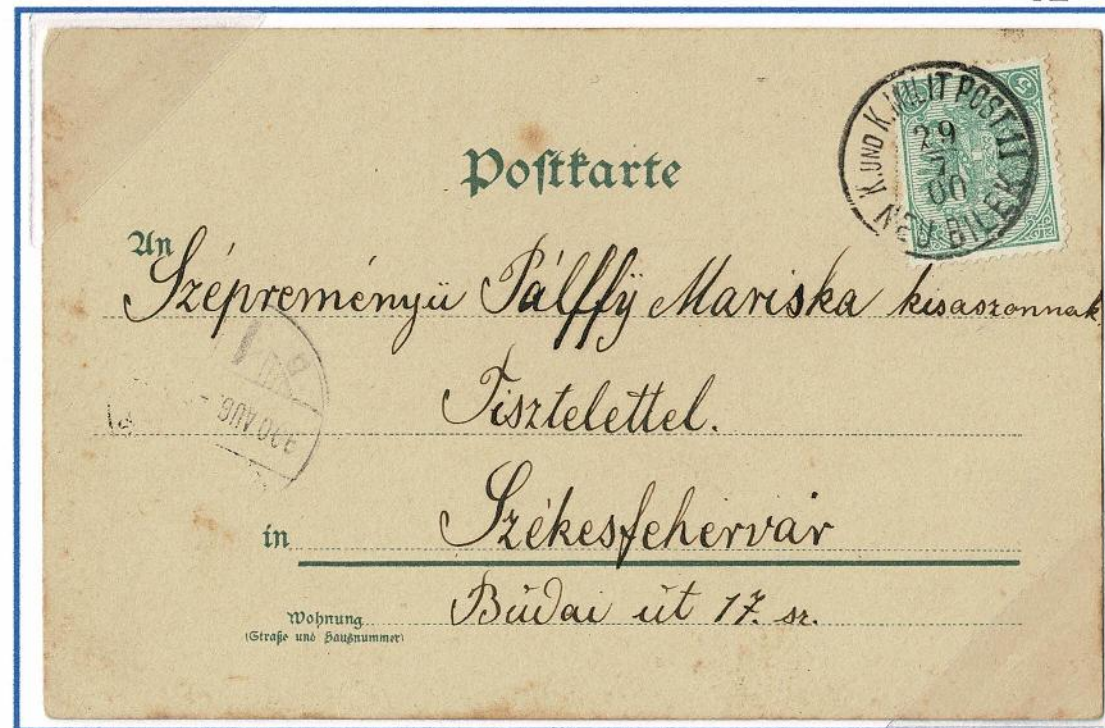 K. UND K. MILIT POST 11
29
7
00
NEU BILEK
5
Postkarte
An
Szépreményü Pálffÿ Mariska kisaszonnak
Tisztelettel.
900 AUG.
in Székesfehervár
Wohnung
(Straße und Hausnummer)
Búdai út 17. sz.